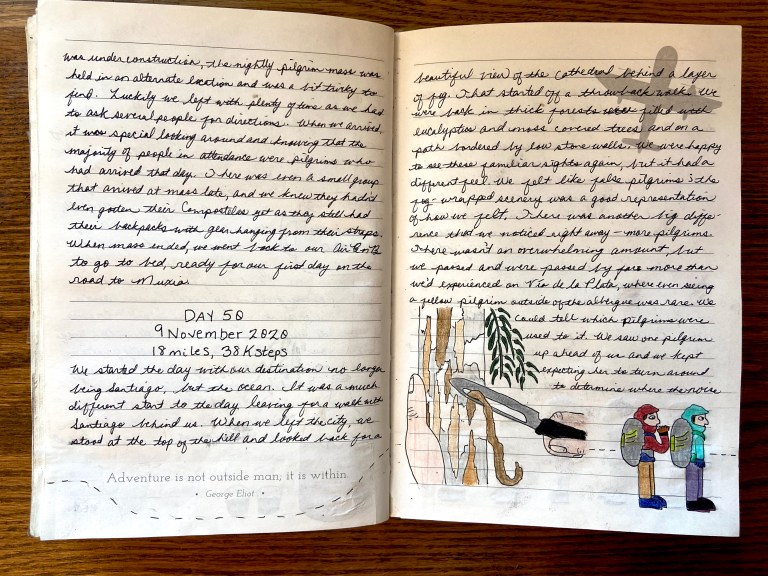 was under construction, the nightly pilgrim mass was
held in an alternate location and was a bit tricky to
find. Luckily we left with plenty of time as we had
to ask several people for directions. When we arrived,
it was special looking around and knowing that the
majority of people in attendance were pilgrims who
had arrived that day. There was even a small group
that arrived at mass late, and we knew they hadn't
even gotten their Compostelas yet as they still had
their backpacks with gear hanging from their straps.
When mass ended, we went back to our AirBnB
to go to bed, ready for our first day on the
road to Muxia.
DAY 50
9 November 2020
18 miles, 38K steps
We started the day with our destination no longer
being Santiago, but the ocean. It was a much
different start to the day leaving for a walk with
Santiago behind us. When we left the city, we
stood at the top of the hill and looked back for a
Adventure is not outside man; it is within.
• George Eliot •
beautiful view of the Cathedral behind a layer
of fog. That started off a throwback walk. We
were back in thick forests filled with
eucalyptus and moss covered trees and on a
path bordered by low stone walls. We were happy
to see these familiar sights again, but it had a
different feel. We felt like false pilgrims & the
fog-wrapped scenery was a good representation
of how we felt. There was another big diffe-
rence that we noticed right away - more pilgrims.
There wasn't an overwhelming amount, but
we passed and were passed by far more than
we'd experienced on Vía de la Plata, where even seeing
a fellow pilgrim outside of the albergue was rare. We
could tell which pilgrims were
used to it. We saw one pilgrim
up ahead of us and we kept
expecting her to turn around
to determine where the noise